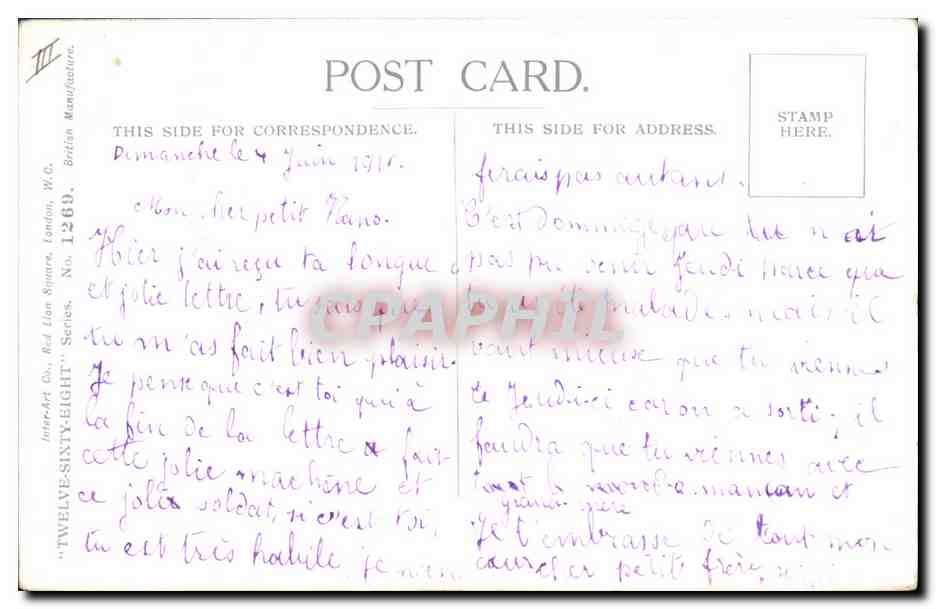 III
POST CARD.
THIS SIDE FOR CORRESPONDENCE.
Dimanche le 4 Juin 191
Mon cher petit Nano.
Hier j'ai reçu ta longue
et jolie lettre, tu sais que
tu m'as fait bien plaisir.
Je pense que c'est toi qui à
la fin de la lettre a fait
cette jolie machène et
ce jolie soldat, si c'est toi,
tu est très habile, je n'en
THIS SIDE FOR ADDRESS.
STAMP
HERE.
ferais pas autant.
C'est dommage que tu n ai
pas pu venir Jeudi parce que
tu été malade. mais il
vaut mieuse que tu viennes
ce Jeudi-ci car on a sorti, il
faudra que tu viennes avec
maman et
grand père
Je t'embrasse de tout mon
cœur cher petit frère,
Inter-Art Co., Red Lion Square, London, W.C. British Manufacture.
"TWELVE-SIXTY-EIGHT" Series. No. 1269.
CPAPHIL